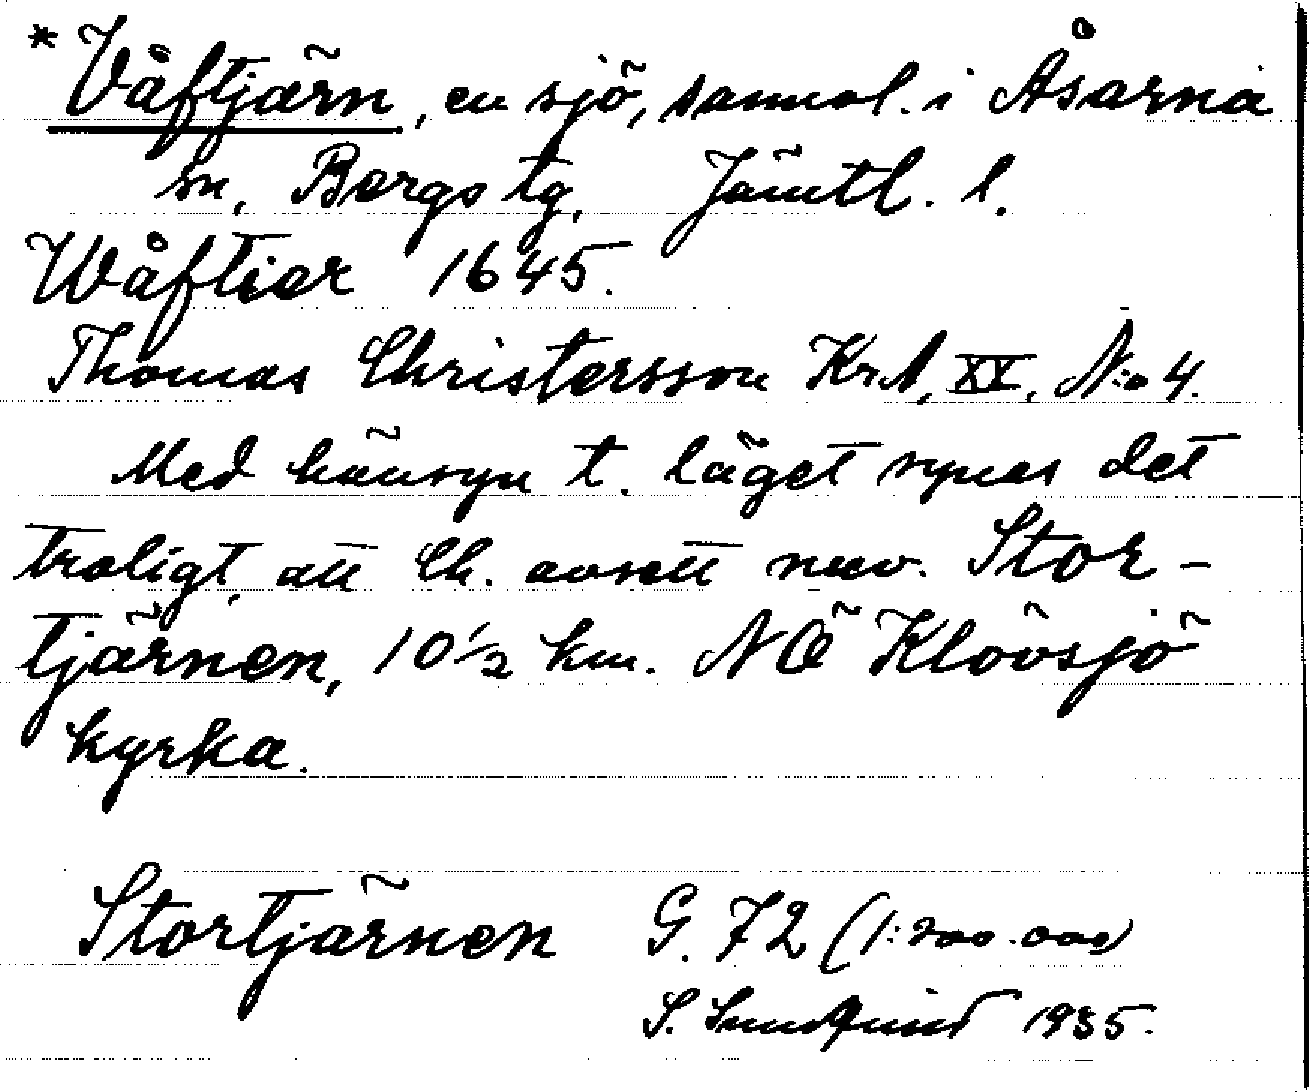 * Våftjärn, en sjö, sannol. i Åsarna
sn, Bergs tg, Jämtl. l.
Wåftier 1645.
Thomas Christersson Kr.A, XX, N:o 4.
Med hänsyn t. läget synes det
troligt, att Ch. avsett nuv. Stor-
tjärnen, 10 1/2 km. NÖ Klövsjö
kyrka.
Stortjärnen G. 72 (1:200.000)
S. 1935.